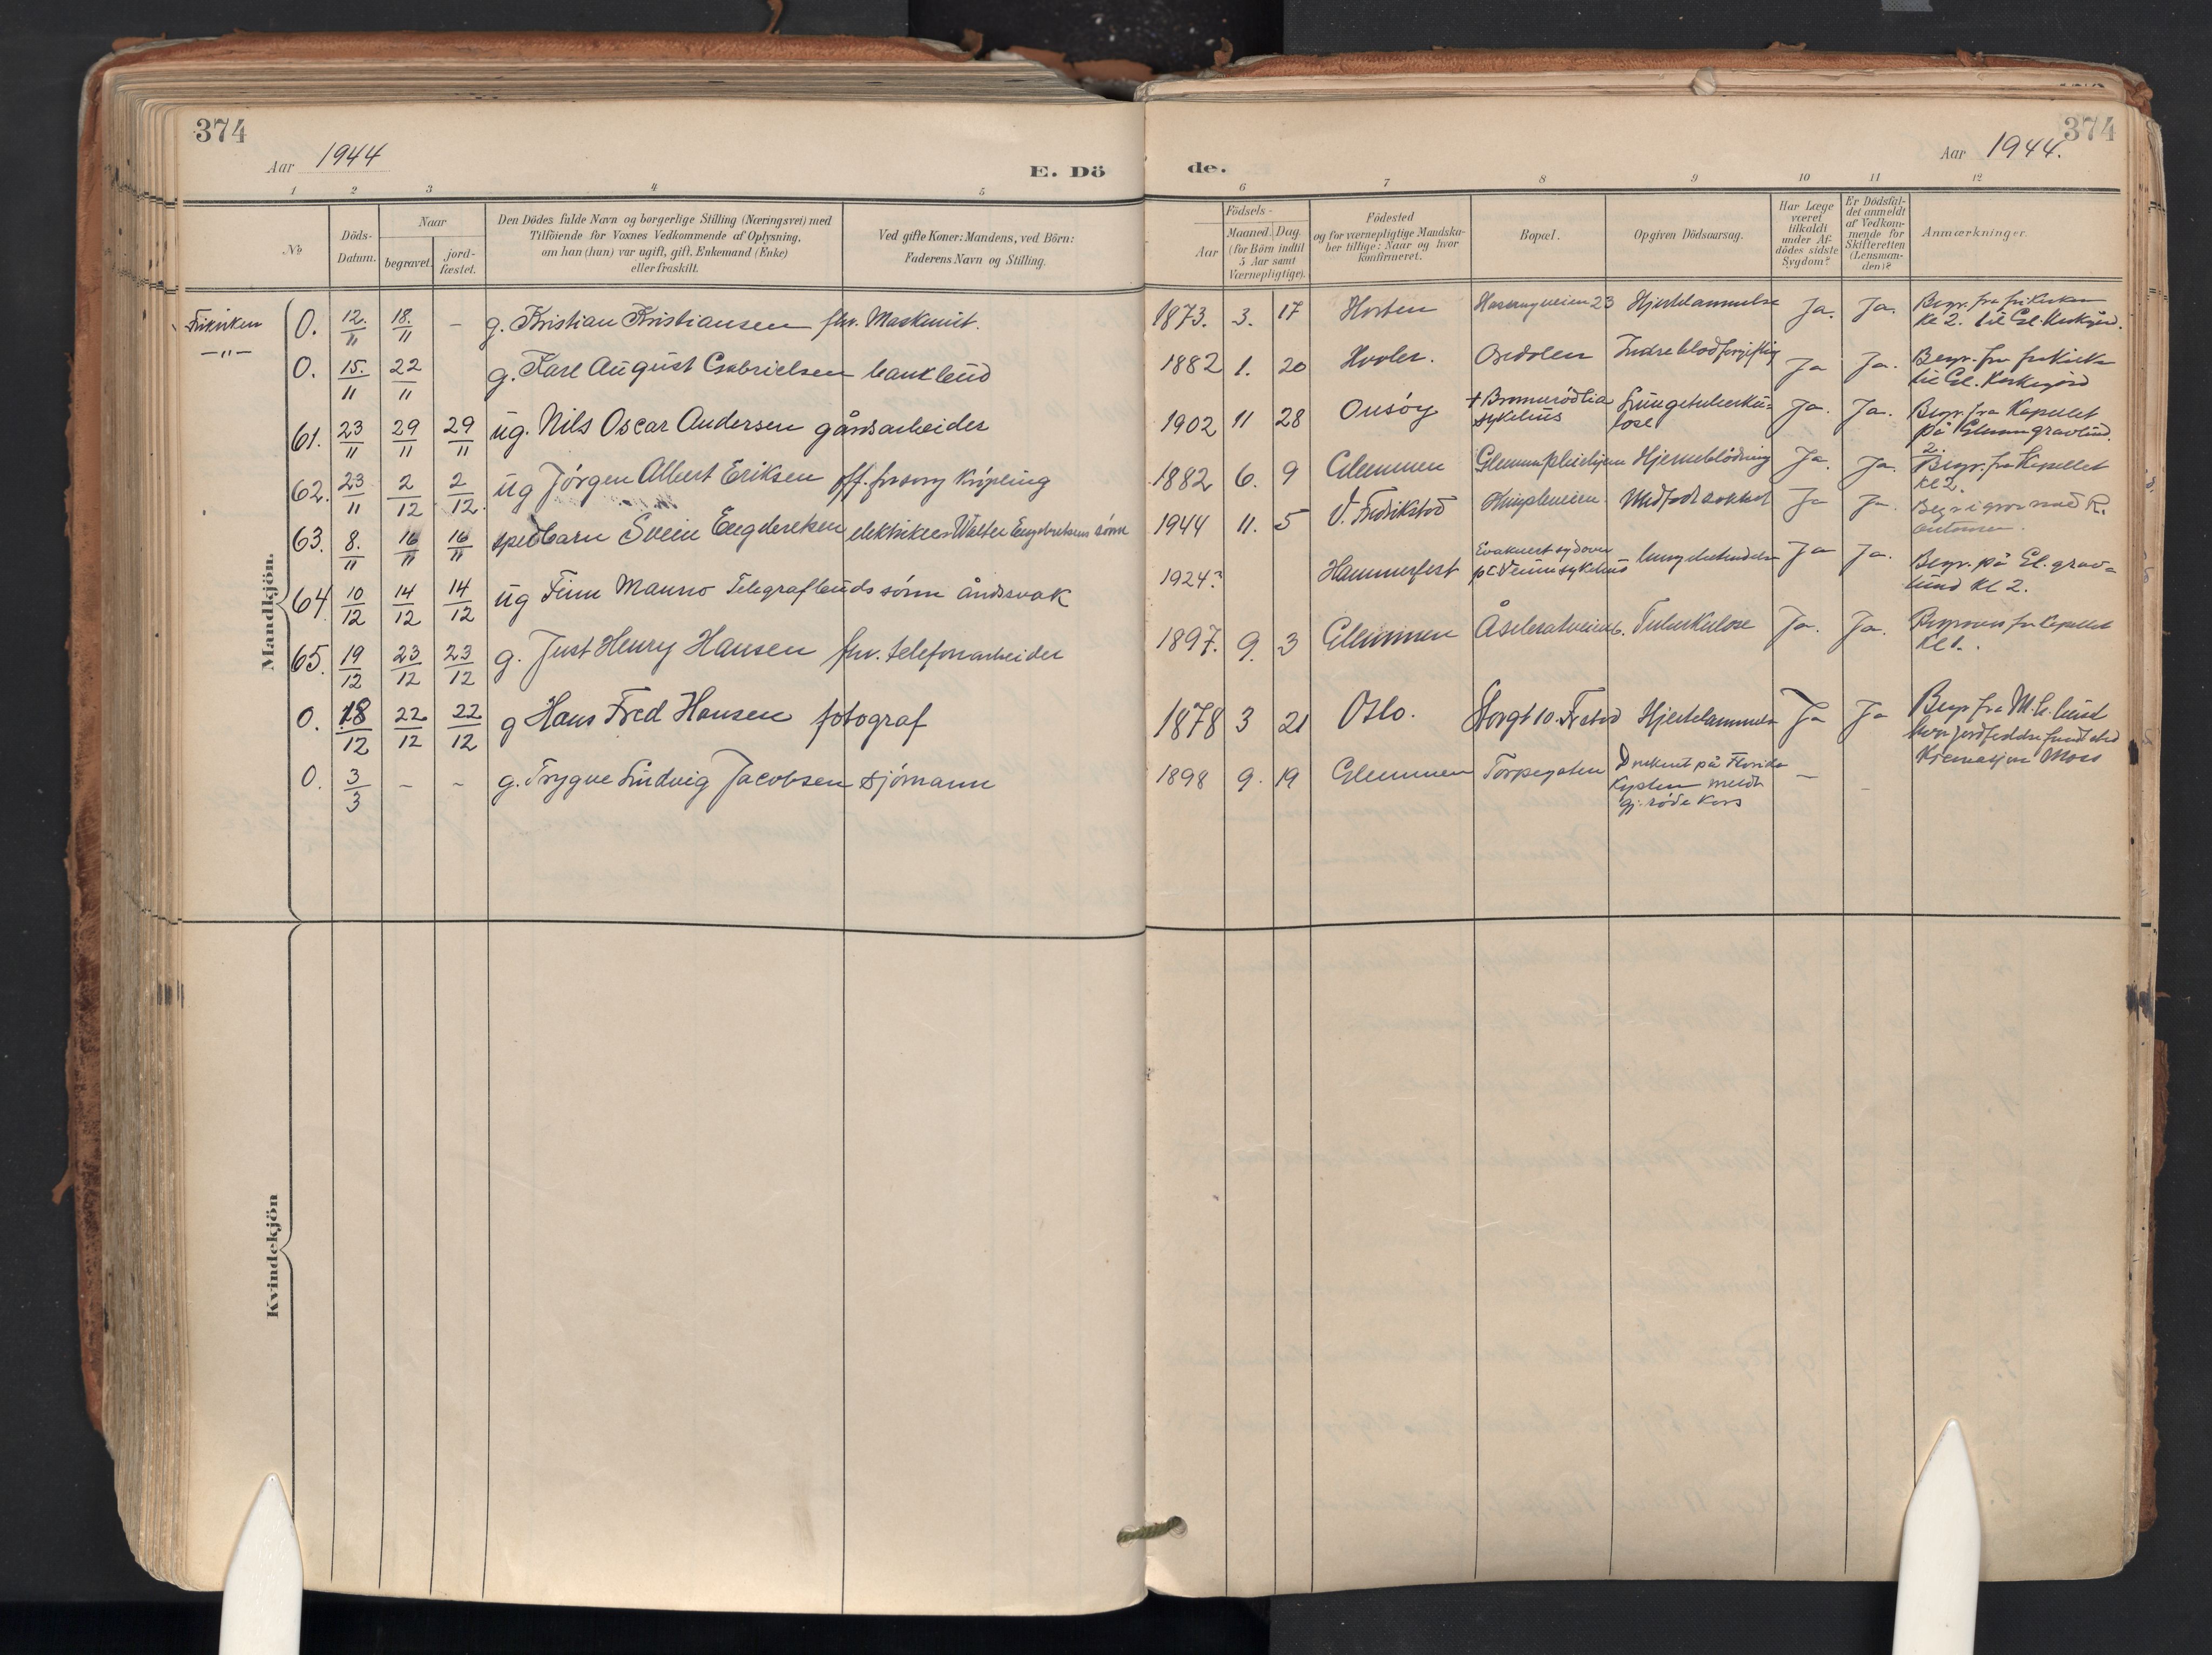 374
Aar 1944
E. Dö
1 2 3 4 5
No
Döds-
Datum.
Naar
begravet.
jord-
fæstet.
Den Dödes fulde Navn og borgerlige Stilling (Næringsvei) med
Tilföiende for Voxnes Vedkommende af Oplysning,
om han (hun) var ugift, gift, Enkemand (Enke)
eller fraskilt.
Ved gifte Koner: Mandens, ved Börn:
Faderens Navn og Stilling.
Mandkjön.
Frikirken O. 12./11 18./11 – g. Kristian Kristiansen fhv. Maskinit.
–"– O. 15./11 22/11 g. Karl August Gabrielsen bankbud
61. 23/11 29/11 29/11 ug. Nils Oscar Andersen gårdsarbeider
62. 23/11 2/12 2/12 ug Jörgen Albert Eriksen off. forsorg Kripling
63. 8./11 16/11 16/11 spedbarn Svein Engebretsen elektriker Walter Engebretsens sönn
64 10/12 14/12 14/12 ug Finn Manno Telegrafbuds sönn åndssvak
65. 19/12 23/12 23/12 g. Just Henry Hansen fhv. telefonarbeider
O. 18/12 22/12 22/12 g Hans Fred Hansen fotograf
O. 3/3 – – g. Trygve Ludvig Jacobsen sjömann
Kvindekjön
374
de.
Aar 1944.
6 7 8 9 10 11 12
Födsels-
Aar
Maaned. Dag.
(for Börn indtil
5 Aar samt
Værnepligtige).
Födested
og for værnepligtige Mandska-
ber tillige: Naar og hvor
konfirmeret.
Bopæl.
Opgiven Dödsaarsag.
Har Læge
været
tilkaldt
under Af-
dödes sidste
Sygdom?
Er Dödsfal-
det anmeldt
af Vedkom-
mende for
Skifteretten
(Lensman-
den)?
Anmærkninger.
1873. 3. 17 Horten 23 Hjertelammelse Ja. Ja. Begr. fra frikirken
Kl 2. til Gl. Kirkegård.
1882 1. 20 Hvaler. Indre blodforgiftig Ja Ja. Begr. fra frikirke
til Gl. Kirkegård
1902 11 28 Onsöy + sykehus Lungetuberku-
lose Ja. Ja. Begr. fra Kapellet
på gravlund.
1882 6. 9 Glemmen Glemm pleiehjem Hjerneblödning Ja. Ja. Begr. fra Kapellet
Kl 2.
1944 11. 5 V. Fredrikstad Medfödt Ja Ja. Begr i grav med R.
1924? Hammerfest Evakuert sydover
sykehus lungebetendelse Ja Ja. Begr. på Gl. grav-
lund Kl 2.
1897. 9. 3 Glemmen Tuberkulose Ja. Ja. fra Kapellet
Kl 1.
1878 3 21 Oslo. Storgt 10. Fr.stad Hjertelammelse Ja Ja Begr fra M.h. lund
Moss
1898 9. 19 Glemmen Torpegaten Druknet på Florida
Kysten meldt
gj. röde Kors – –